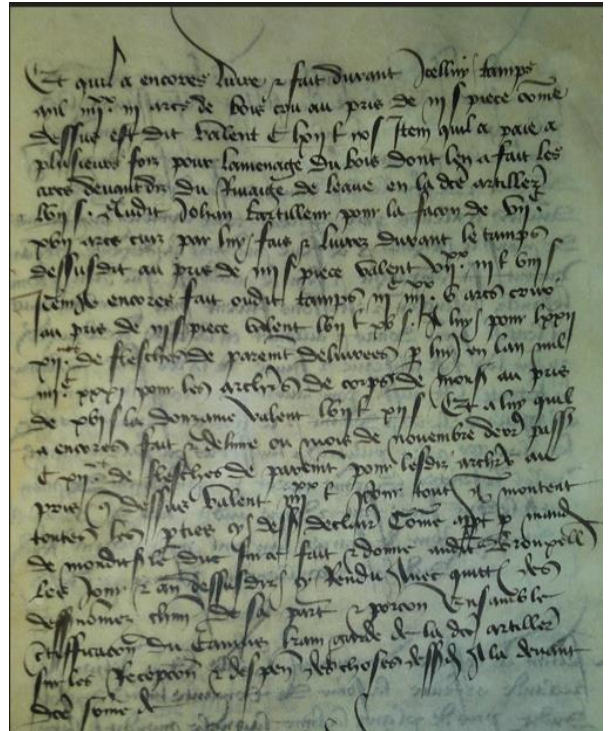 Et quil a encores livre & fait durant Icelluy temps
quil iiii^c iii arcs de bois crou au pris de iii s piece come
dessus est dit valent C lxii l xo s Item quil a paie a
plusieurs foiz pour lamenage du bois dont len a fait les
arcs devantdiz du Rivaige de leaue en la dce artiller
lvii s. Audit Johan lartilleur pour la facon de vii^c
xvii arcs cuiz par luy fais & livrez durant le temps
dessusdit au pris de iiii s piece valent vii^xx iii l viii s
Item encores fait oudit temps iii^c iiii^xx v arcs crouz
au pris de iii s piece valent lvii l xv s. A luy pour lxxii
xii^nes de flesches de paremt delivrees p luy en lan mil
iiii^c xxxi pour les archiers de corps de mons au pris
de xvi s la douzaine valent lvii l xii s Et a luy quil
a encores fait & delivre ou mois de novembre derr passe
C xii^nes de flesches de paremt pour lesdiz archiers au
pris dessus valent iiii^xx l pour tout montent
toutes les pties cy dess declair Come appt p mand
de mondit s le duc sur ce fait & donne audit Brouxell
les jour & an dessusdiz cy Rendu Avec quict des
dess nomez chun de sa part & porcon Ensamble
certifficacon du Camus garde de la dce artiller
sur les Recepcon & despen des choses dessd A la devant
dce some de